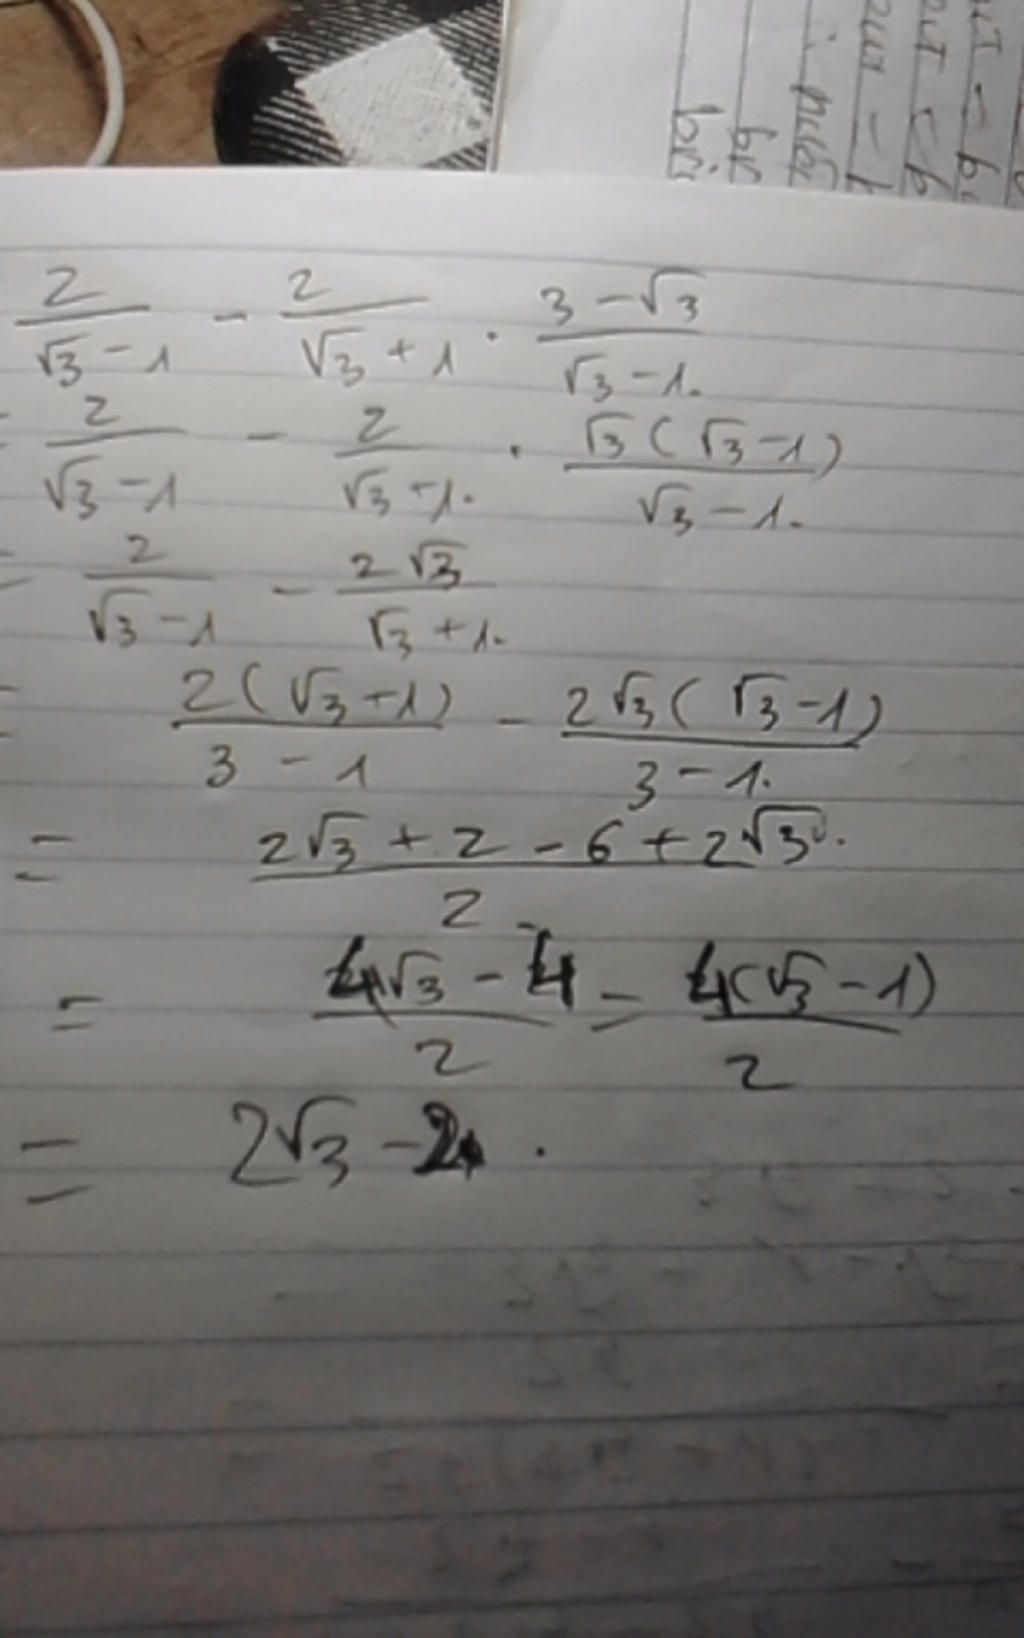 2/(√3 − 1) − 2/(√3 + 1) · (3 − √3)/(√3 − 1.
= 2/(√3 − 1) − 2/(√3 + 1. · √3(√3 − 1)/(√3 − 1.
= 2/(√3 − 1) − 2√3/(√3 + 1.
= 2(√3 + 1)/(3 − 1) − 2√3(√3 − 1)/(3 − 1.
= (2√3 + 2 − 6 + 2√3.)/2
= (4√3 − 4)/2 = 4(√3 − 1)/2
= 2√3 − 2 .